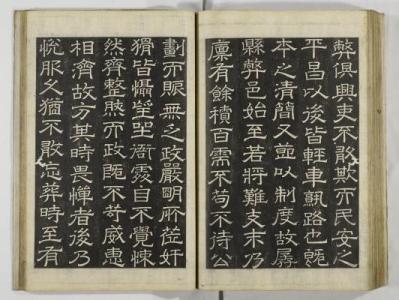 弊俱興吏不敢欺而民安之
平昌以後皆輕車孰路也既
本之清簡又並以制度故孱
縣弊邑始至若將難支末乃
廩有餘積百需不苟不待公
劃而賑無之政嚴明所莅奸
猾皆懾望望衙露目不覺悚
然齊整然而政既不苛威惠
相濟故方其時畏憚者後乃
悅服久猶不敢忘葬時至有